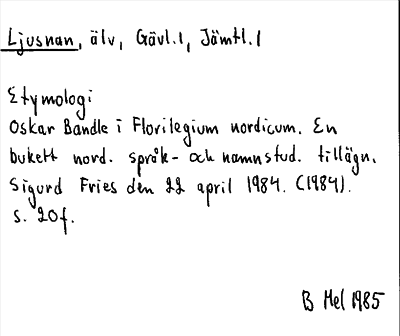 Ljusnan, älv, Gävl.l, Jämtl.l
Etymologi
Oskar Bandle i Florilegium nordicum. En
bukett nord. språk- och namnstud. tillägn.
Sigurd Fries den 22 april 1984. (1984).
s. 20f.
B Mel 1985